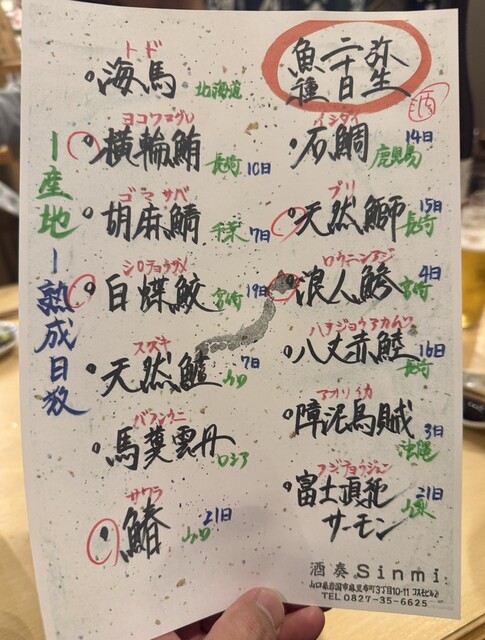 弥生
二十日
魚種
酒
トド
海馬
北海道
ヨコワマグロ
横輪鮪
長崎 10日
ゴマサバ
胡麻鯖
千葉 7日
シロチョウザメ
白蝶鮫
宮崎 19日
スズキ
天然鱸
山口 7日
バフンウニ
馬糞雲丹
ロシア
サワラ
鰆
山口 21日
イシダイ
石鯛
鹿児島 14日
ブリ
天然鰤
長崎 15日
ロウニンアジ
浪人鯵
宮崎 4日
ハチジョウアカムツ
八丈赤鯥
長崎 16日
アオリイカ
障泥烏賊
3日
フジチョウジュン
富士頂純
サーモン
21日
ー産地
ー熟成日数
酒奏Sinmi
山口県岩国市麻里布町3丁目10-11 コスモビル2
TEL 0827-35-6625